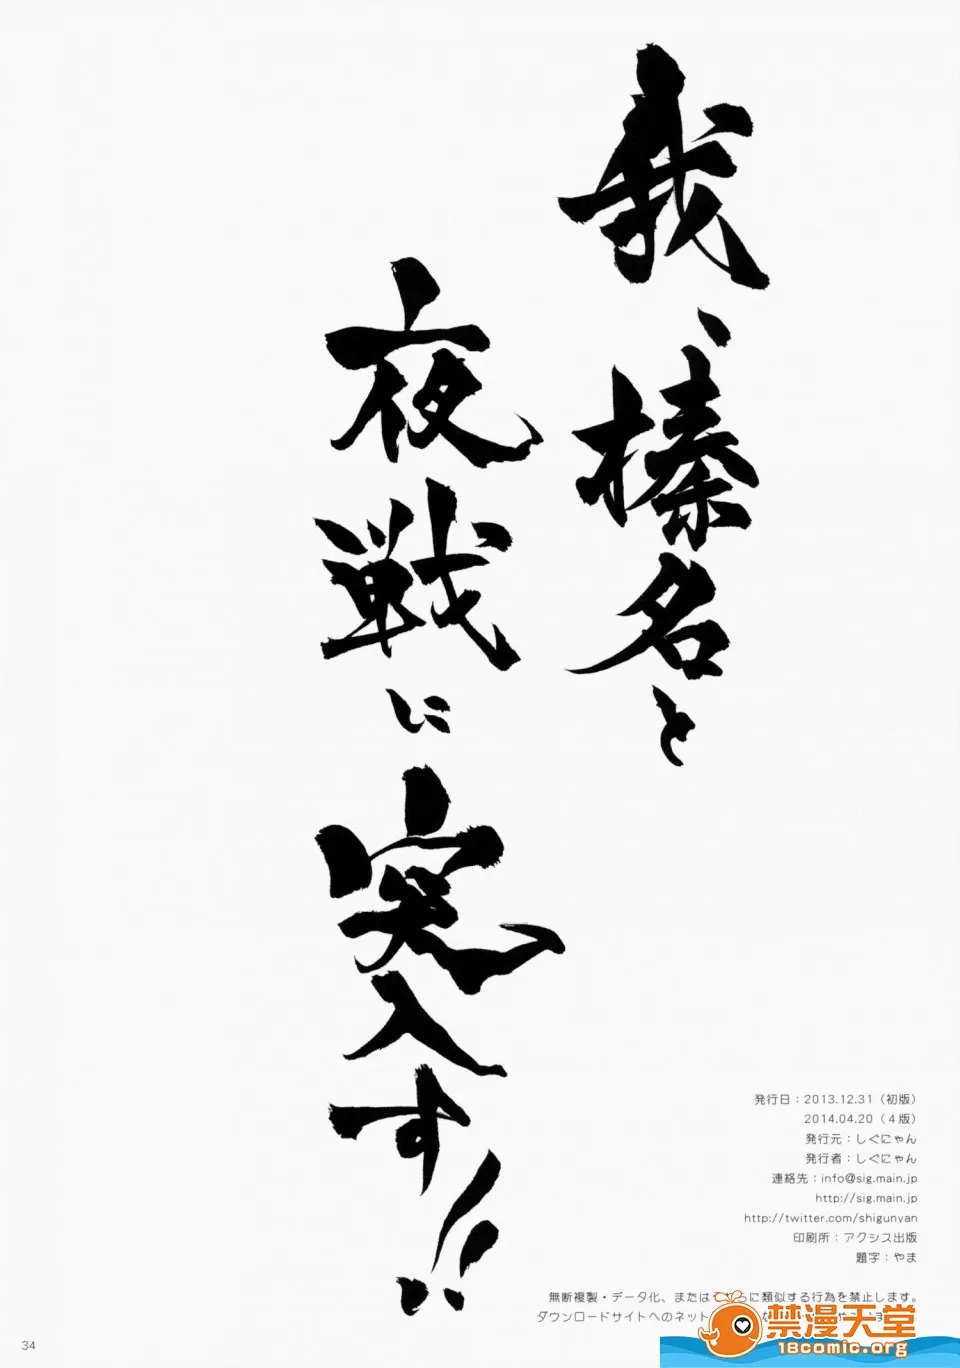 我、榛名と
夜戦に突入す!!
発行日：2013.12.31（初版）
2014.04.20（４版）
発行元：しぐにゃん
発行者：しぐにゃん
連絡先：info@sig.main.jp
http://sig.main.jp
http://twitter.com/shigunyan
印刷所：アクシス出版
題字：やま
無断複製・データ化、または に類似する行為を禁止します。
ダウンロードサイトへのネット
34
禁漫天堂
18comic.org